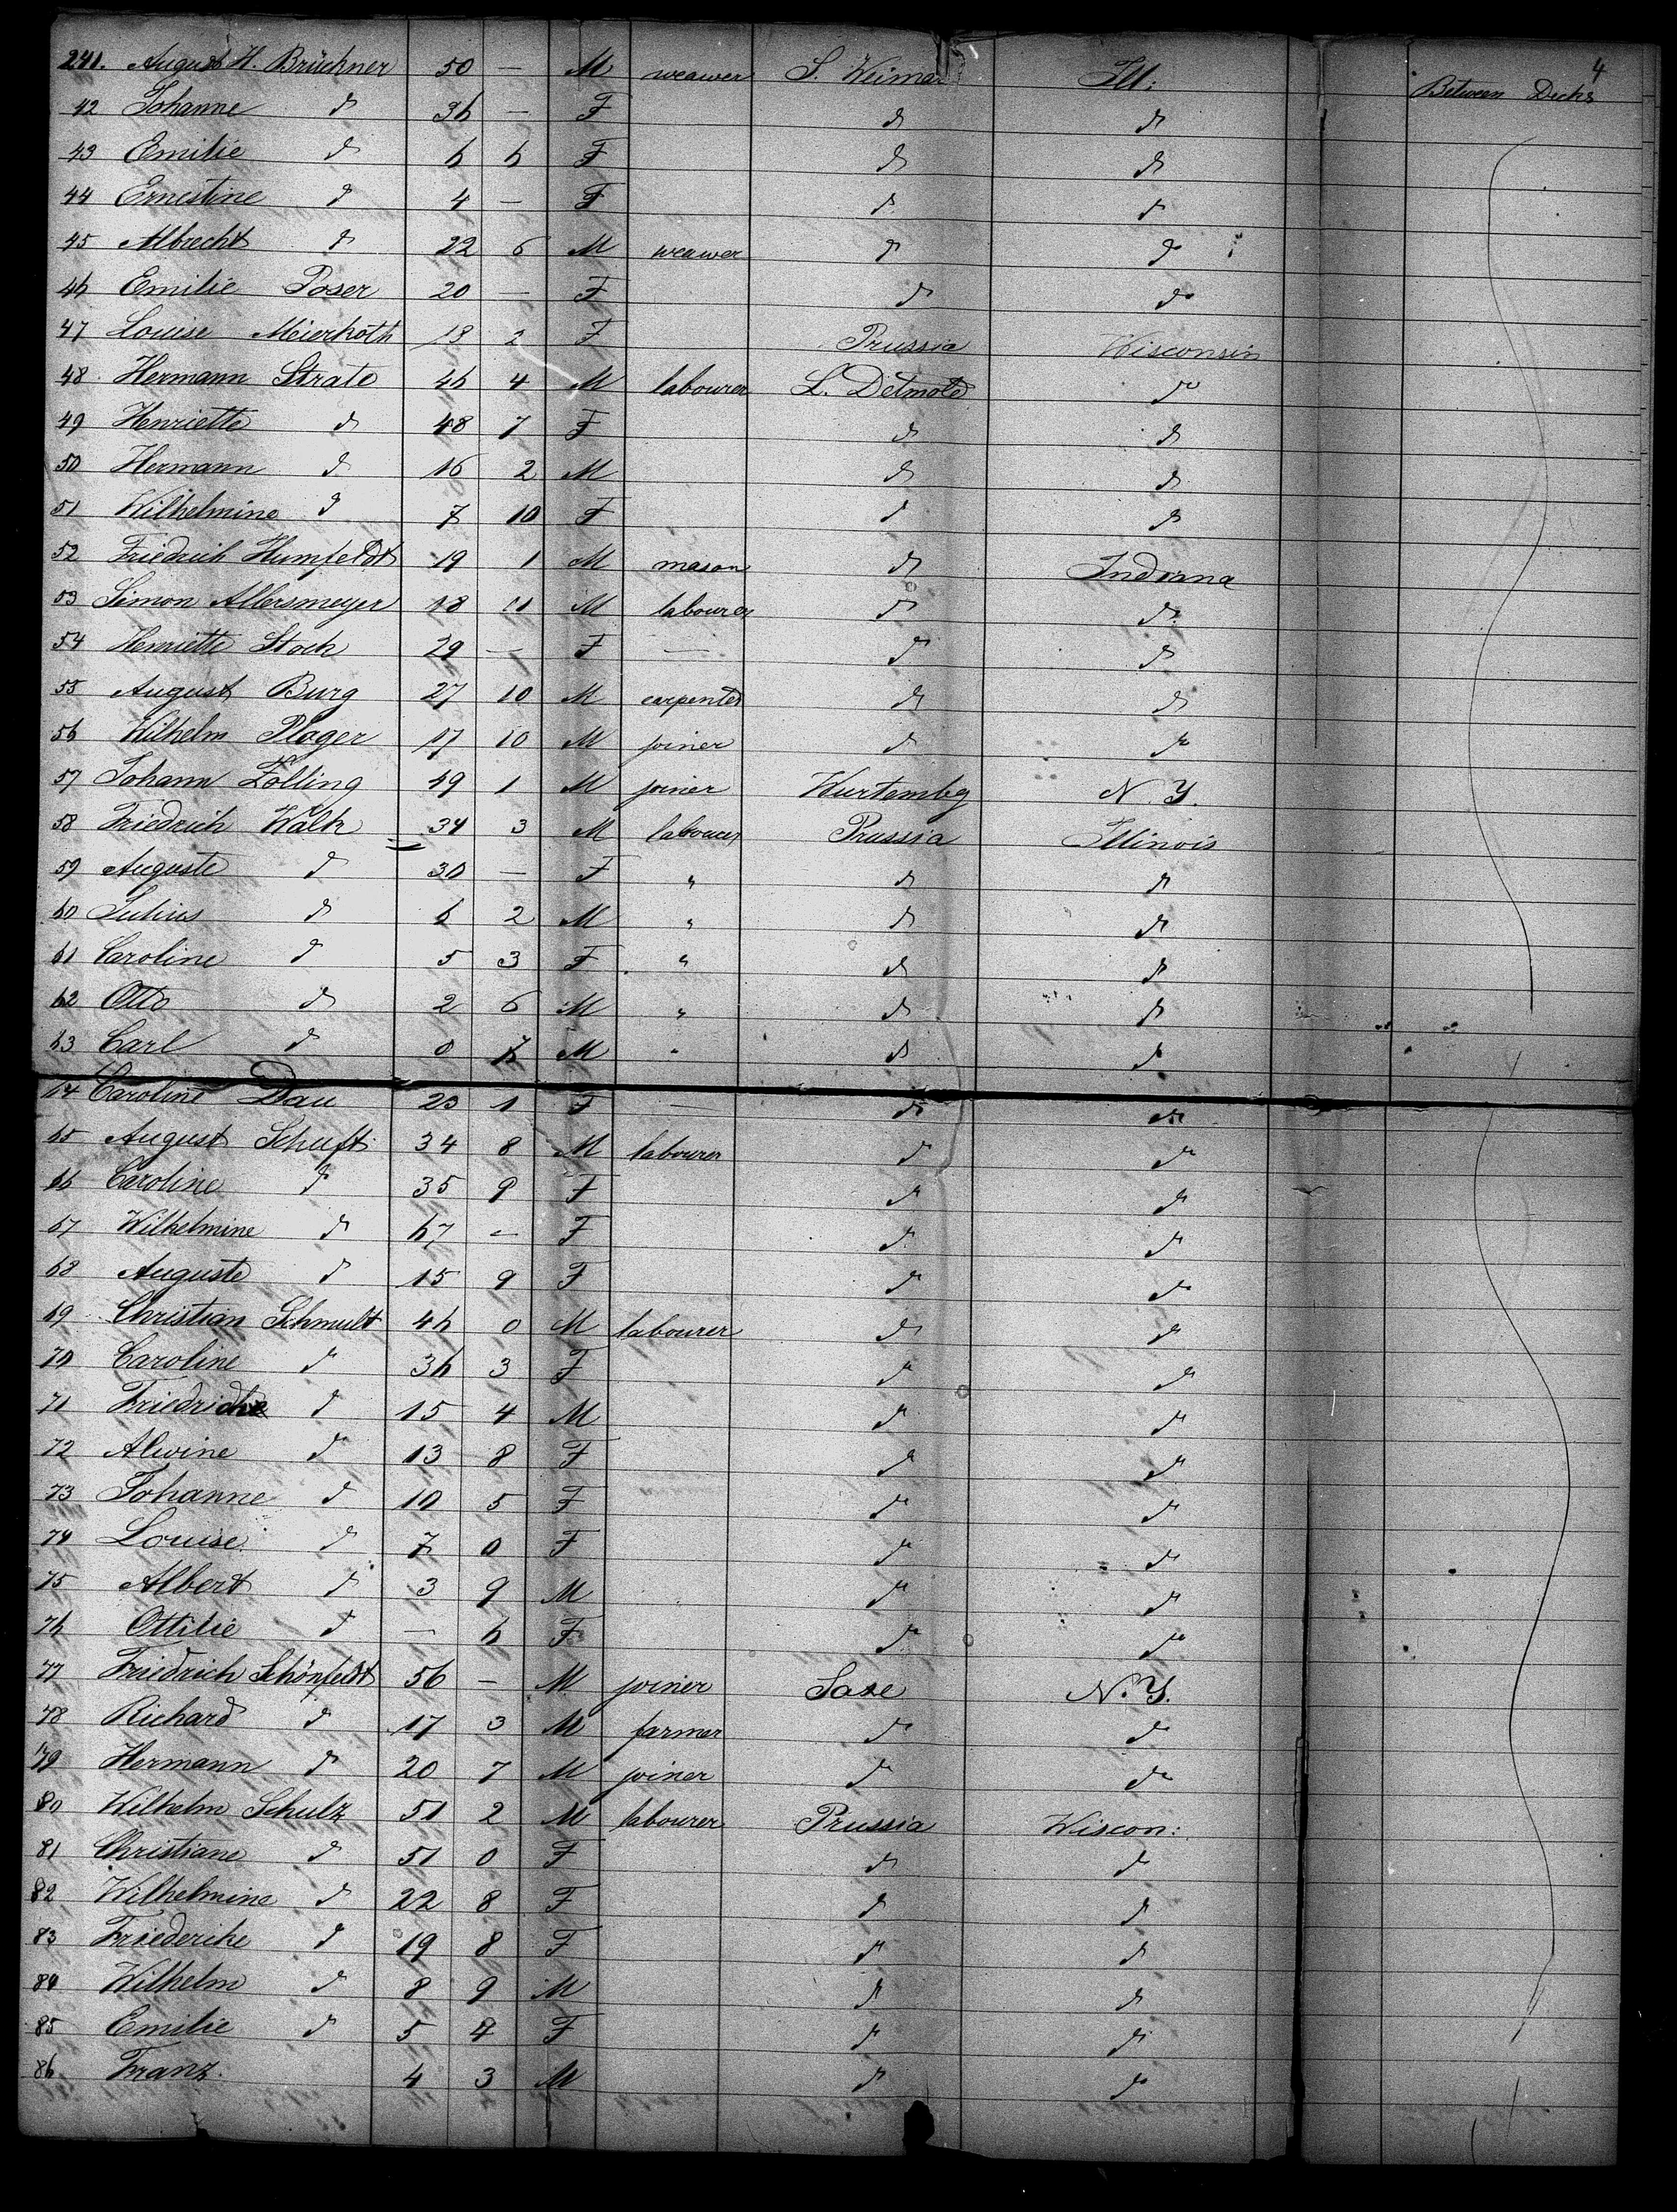 4
Between Decks
241. August H. Brückner 50 — M weawer S. Weimar Ill:
42 Johanne d 36 — F d d
43 Emilie d 6 6 F d d
44 Ernestine d 4 — F d d
45 Albrecht d 22 6 M weawer d d
46 Emilie Poser 20 — F d d
47 Louise Meierkoth 13 2 F Prussia Wisconsin
48 Hermann Strate 46 4 M labourer L. Detmold d
49 Henriette d 48 7 F d d
50 Hermann d 16 2 M d d
51 Wilhelmine d 7 10 F d d
52 Friedrich Humfeldt 19 1 M mason d Indiana
53 Simon Allersmeyer 18 11 M labourer d d
54 Henriette Stock 29 — F — d d
55 August Burg 27 10 M carpenter d d
56 Wilhelm Plöger 17 10 M joiner d d
57 Johann Zölling 49 1 M joiner Wurtembg N.Y.
58 Friedrich Walk 34 3 M labourer Prussia Illinois
59 Auguste d 30 — F " d d
60 Julius d 6 2 M " d d
61 Caroline d 5 3 F " d d
62 Otto d 2 6 M " d d
63 Carl d 0 M " d d
64 Caroline Dau 23 1 F — d d
65 August Schuft 34 8 M labourer d d
66 Caroline d 35 9 F d d
67 Wilhelmine d 67 — F d d
68 Auguste d 15 9 F d d
69 Christian Schmult 46 0 M labourer d d
70 Caroline d 36 3 F d d
71 Friedrich d 15 4 M d d
72 Alwine d 13 8 F d d
73 Johanne d 10 5 F d d
74 Louise d 7 0 F d d
75 Albert d 3 9 M d d
76 Ottilie d — 6 F d d
77 Friedrich Schönfeldt 56 — M joiner Saxe N.Y.
78 Richard d 17 3 M farmer d d
79 Hermann d 20 7 M joiner d d
80 Wilhelm Schulz 51 2 M labourer Prussia Wiscon:
81 Christiane d 51 0 F d d
82 Wilhelmine d 22 8 F d d
83 Friederike d 19 8 F d d
84 Wilhelm d 8 9 M d d
85 Emilie d 5 F d d
86 Franz 4 3 M d d